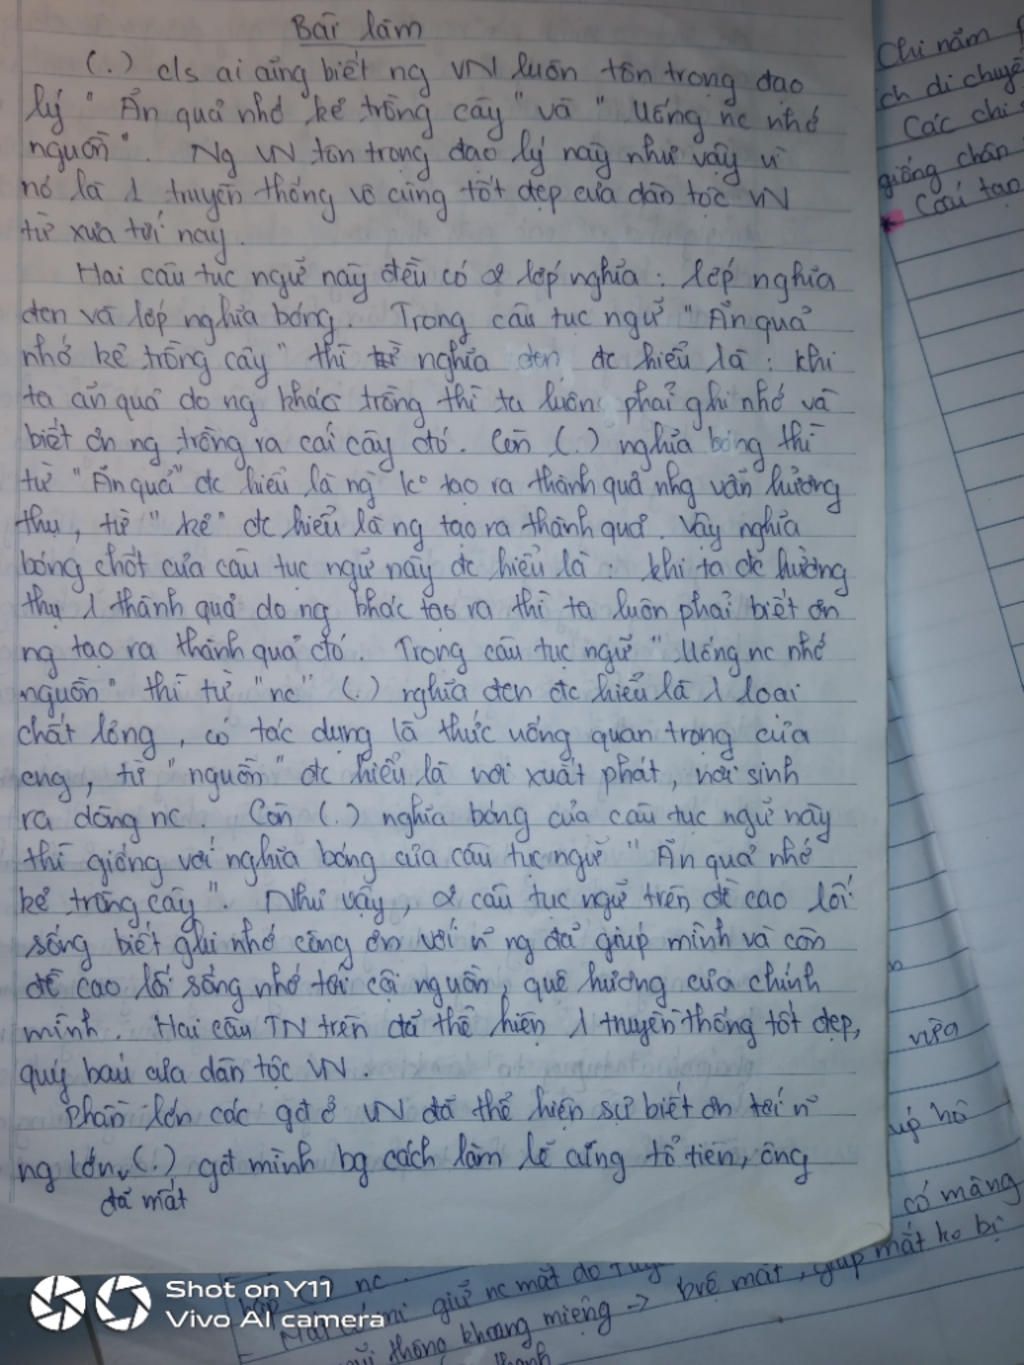 Bài làm
(.) c/s ai cũng biết ng VN luôn tôn trọng đạo
lý " Ăn quả nhớ kẻ trồng cây " và " Uống nc nhớ
nguồn ". Ng VN tôn trọng đạo lý này như vậy vì
nó là 1 truyền thống vô cùng tốt đẹp của dân tộc VN
từ xưa tới nay.
Hai câu tục ngữ này đều có 2 lớp nghĩa : lớp nghĩa
đen và lớp nghĩa bóng. Trong câu tục ngữ " Ăn quả
nhớ kẻ trồng cây " thì nghĩa đen đc hiểu là : khi
ta ăn quả do ng khác trồng thì ta luôn phải ghi nhớ và
biết ơn ng trồng ra cái cây đó. Còn (.) nghĩa bóng thì
từ " Ăn quả " đc hiểu là ng ko tạo ra thành quả nhg vẫn hưởng
thụ, từ " kẻ " đc hiểu là ng tạo ra thành quả. Vậy nghĩa
bóng chốt của câu tục ngữ này đc hiểu là : khi ta đc hưởng
thụ 1 thành quả do ng khác tạo ra thì ta luôn phải biết ơn
ng tạo ra thành quả đó. Trong câu tục ngữ " Uống nc nhớ
nguồn " thì từ " nc " (.) nghĩa đen đc hiểu là 1 loại
chất lỏng, có tác dụng là thức uống quan trọng của
cng, từ " nguồn " đc hiểu là nơi xuất phát, nơi sinh
ra dòng nc. Còn (.) nghĩa bóng của câu tục ngữ này
thì giống với nghĩa bóng của câu tục ngữ " Ăn quả nhớ
kẻ trồng cây ". Như vậy, 2 câu tục ngữ trên đề cao lối
sống biết ghi nhớ công ơn với n~ ng đã giúp mình và còn
đề cao lối sống nhớ tới cội nguồn, quê hương của chính
mình. Hai câu TN trên đã thể hiện 1 truyền thống tốt đẹp,
quý báu của dân tộc VN.
Phần lớn các gđ ở VN đã thể hiện sự biết ơn tới n~
ng lớn (.) gđ mình bg cách làm lễ cúng tổ tiên, ông
đã mất
Chi nằm
ch di chuyể
Các chi
giống chân
Cấu tạo
vừa
úp hô
có màng
giúp mắt ko bị
giữ nc mắt do
khoang miệng → bvệ mắt,
thông
Shot on Y11
Vivo AI camera